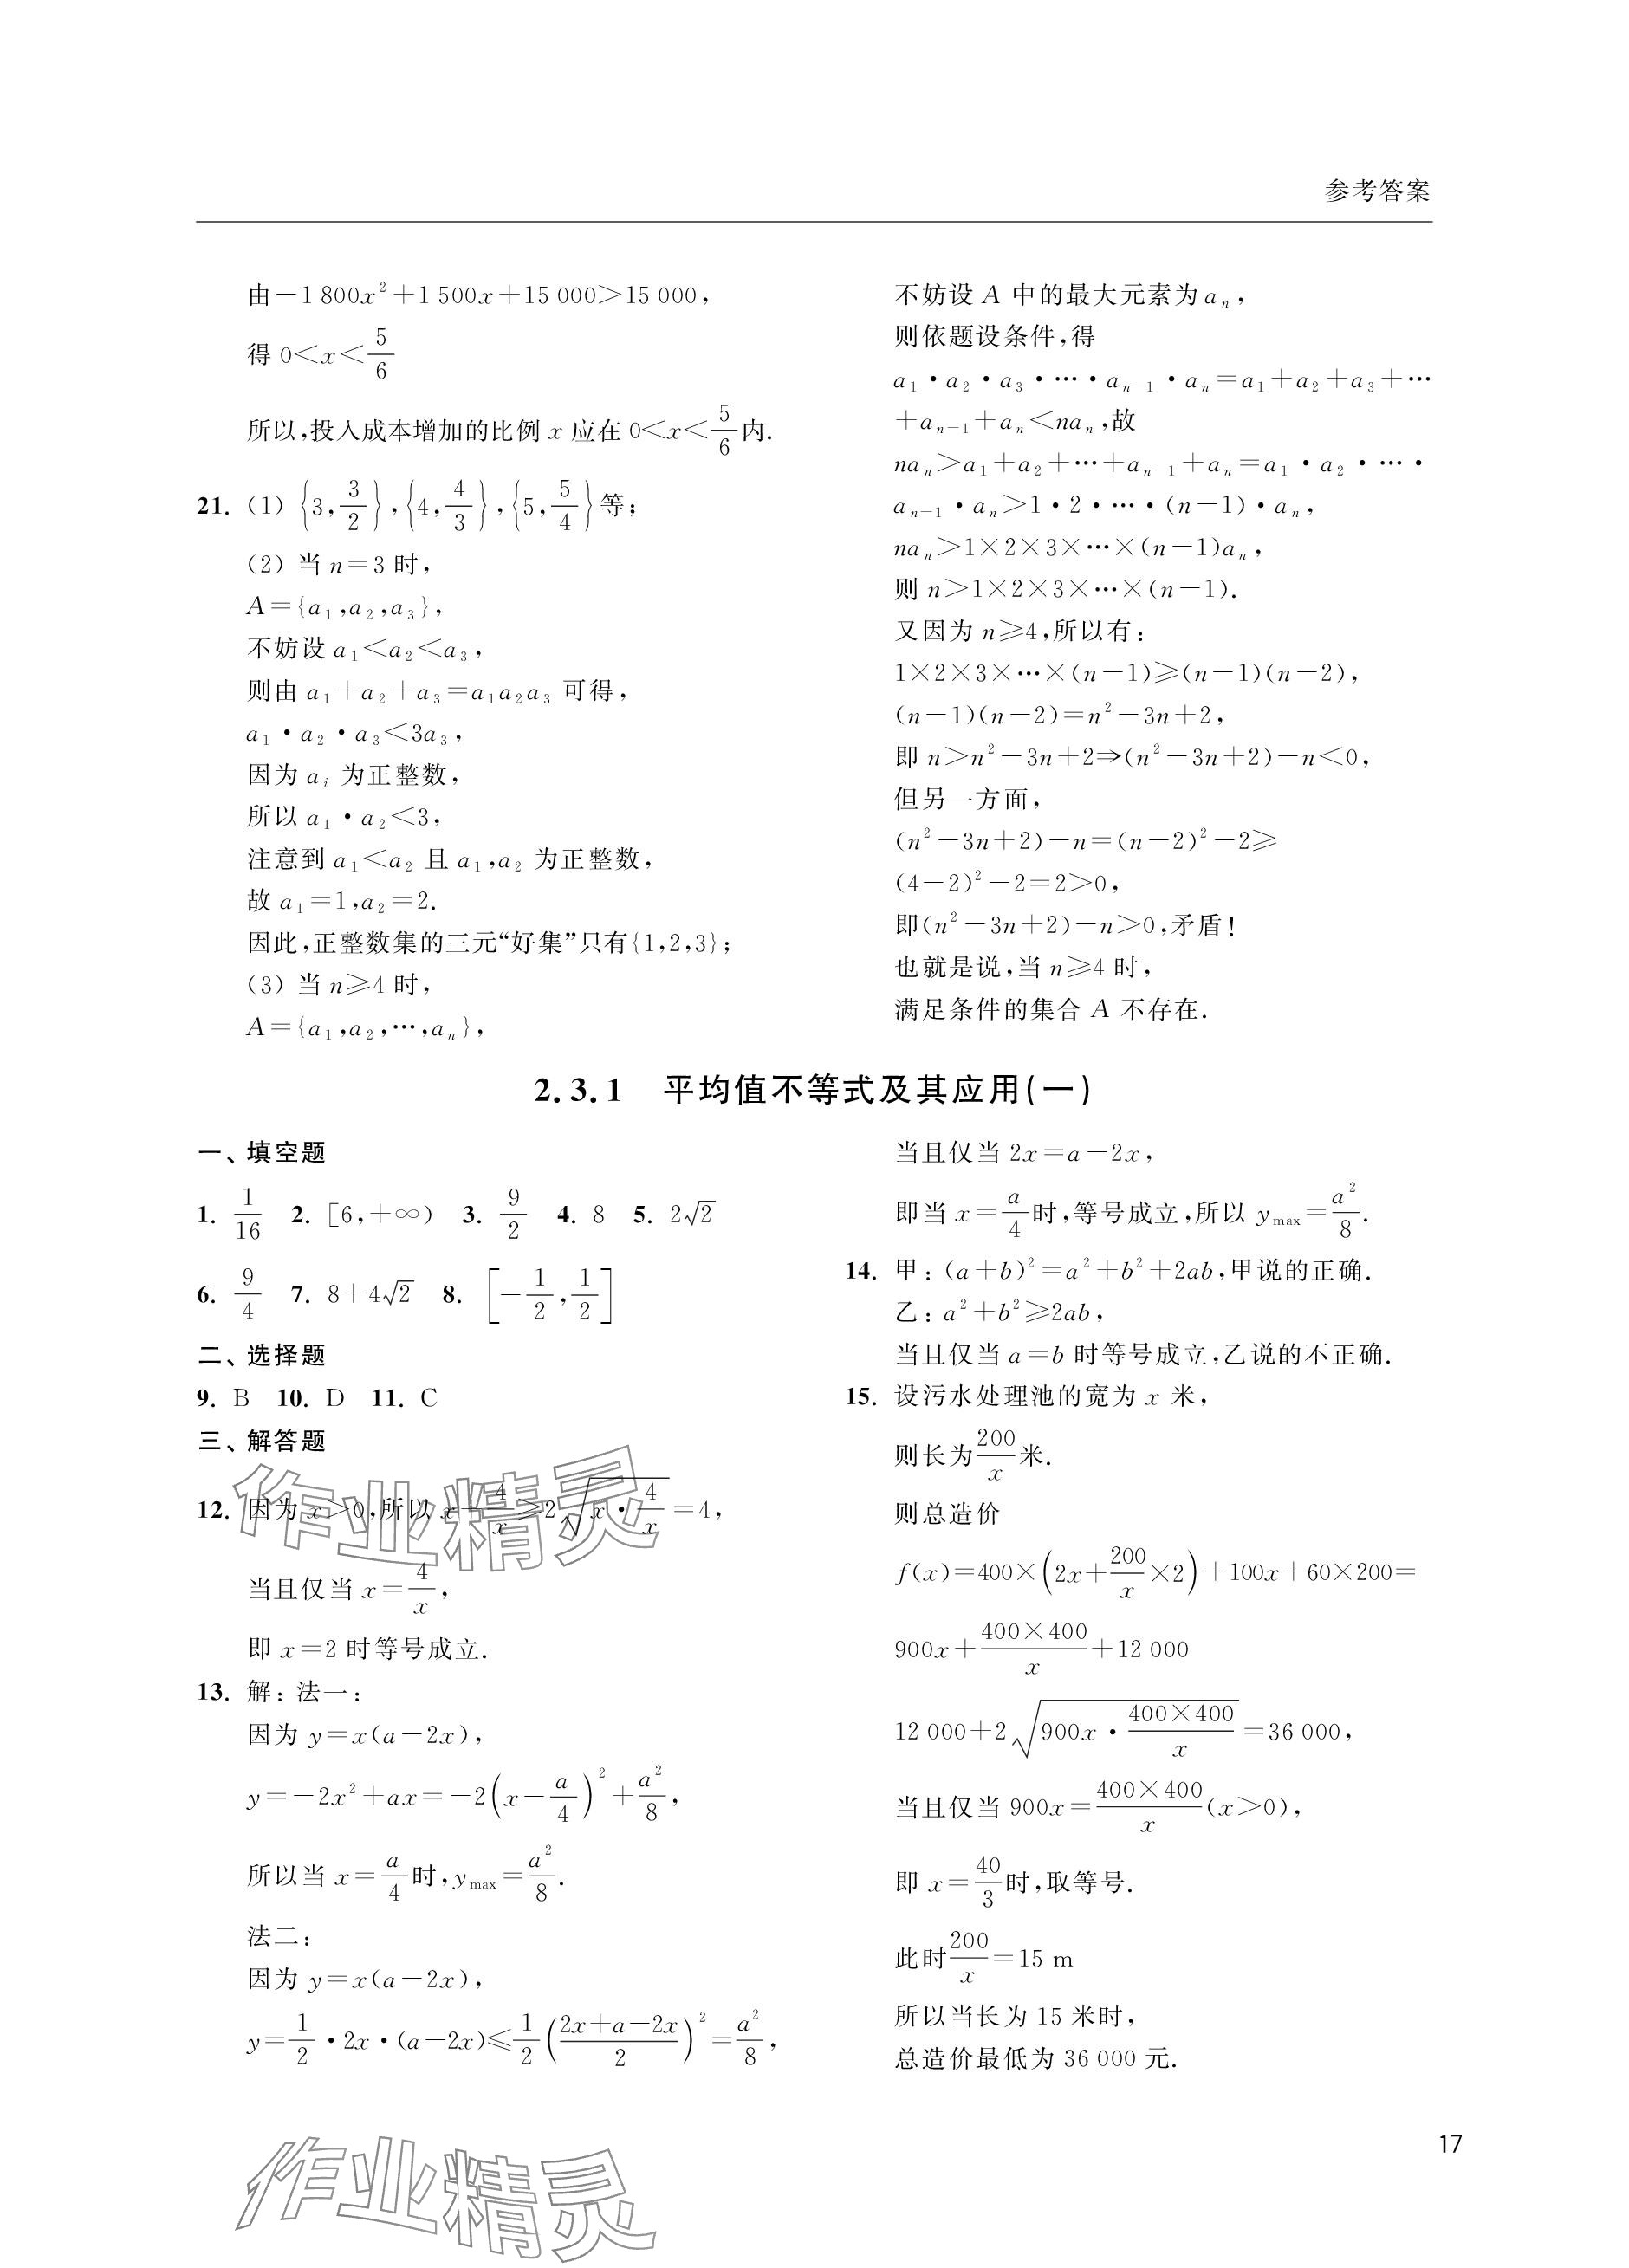 参考答案
由－1 800x²＋1 500x＋15 000＞15 000，
得 0＜x＜5/6
所以，投入成本增加的比例 x 应在 0＜x＜5/6内．
21. (1) {3,3/2},{4,4/3},{5,5/4}等；
(2) 当 n＝3 时，
A＝{a₁,a₂,a₃}，
不妨设 a₁＜a₂＜a₃，
则由 a₁＋a₂＋a₃＝a₁a₂a₃ 可得，
a₁·a₂·a₃＜3a₃，
因为 aᵢ 为正整数，
所以 a₁·a₂＜3，
注意到 a₁＜a₂ 且 a₁,a₂ 为正整数，
故 a₁＝1,a₂＝2．
因此，正整数集的三元“好集”只有{1,2,3}；
(3) 当 n≥4 时，
A＝{a₁,a₂,…,aₙ}，
不妨设 A 中的最大元素为aₙ，
则依题设条件，得
a₁·a₂·a₃·…·aₙ₋₁·aₙ＝a₁＋a₂＋a₃＋…
＋aₙ₋₁＋aₙ＜naₙ，故
naₙ＞a₁＋a₂＋…＋aₙ₋₁＋aₙ＝a₁·a₂·…·
aₙ₋₁·aₙ＞1·2·…·(n－1)·aₙ，
naₙ＞1×2×3×…×(n－1)aₙ，
则 n＞1×2×3×…×(n－1)．
又因为 n≥4，所以有：
1×2×3×…×(n－1)≥(n－1)(n－2)，
(n－1)(n－2)＝n²－3n＋2，
即 n＞n²－3n＋2⇒(n²－3n＋2)－n＜0，
但另一方面，
(n²－3n＋2)－n＝(n－2)²－2≥
(4－2)²－2＝2＞0，
即(n²－3n＋2)－n＞0，矛盾！
也就是说，当 n≥4 时，
满足条件的集合 A 不存在．
2.3.1 平均值不等式及其应用(一)
一、填空题
1. 1/16 2. [6,＋∞) 3. 9/2 4. 8 5. 2√2
6. 9/4 7. 8＋4√2 8. [－1/2,1/2]
二、选择题
9. B 10. D 11. C
三、解答题
12. 因为 x＞0，所以 x＋4/x≥2√(x·4/x)＝4，
当且仅当 x＝4/x，
即 x＝2 时等号成立．
13. 解：法一：
因为 y＝x(a－2x)，
y＝－2x²＋ax＝－2(x－a/4)²＋a²/8，
所以当 x＝a/4时，yₘₐₓ＝a²/8．
法二：
因为 y＝x(a－2x)，
y＝1/2·2x·(a－2x)≤1/2((2x＋a－2x)/2)²＝a²/8，
当且仅当 2x＝a－2x，
即当 x＝a/4时，等号成立，所以 yₘₐₓ＝a²/8．
14. 甲：(a＋b)²＝a²＋b²＋2ab，甲说的正确．
乙：a²＋b²≥2ab，
当且仅当 a＝b 时等号成立，乙说的不正确．
15. 设污水处理池的宽为 x 米，
则长为200/x米．
则总造价
f(x)＝400×(2x＋200/x×2)＋100x＋60×200＝
900x＋(400×400)/x＋12 000
12 000＋2√(900x·(400×400)/x)＝36 000，
当且仅当 900x＝(400×400)/x(x＞0)，
即 x＝40/3时，取等号．
此时200/x＝15 m
所以当长为 15 米时，
总造价最低为 36 000 元．
17
作业精灵
作业精灵